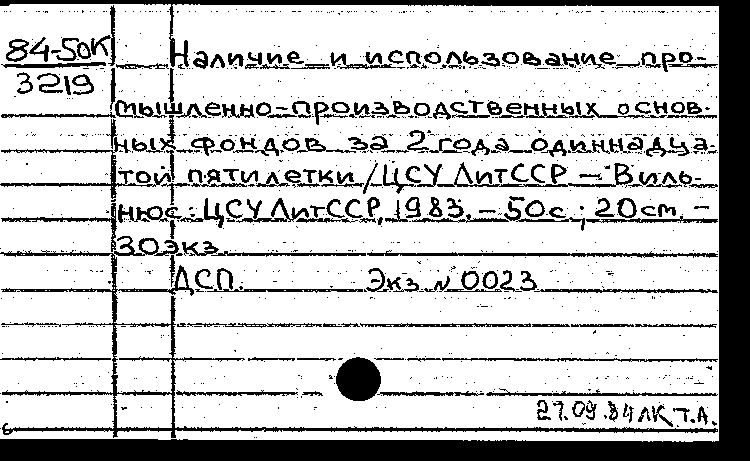 84-50К
3219
Наличие и использование про-
мышленно-производственных основ-
ных фондов за 2 года одиннадца-
той пятилетки / ЦСУ ЛитССР. — Виль-
нюс: ЦСУ ЛитССР, 1983. - 50с.; 20см. -
30экз.
ДСП. Экз N 0023
27.09.84 ЛК Т.А.